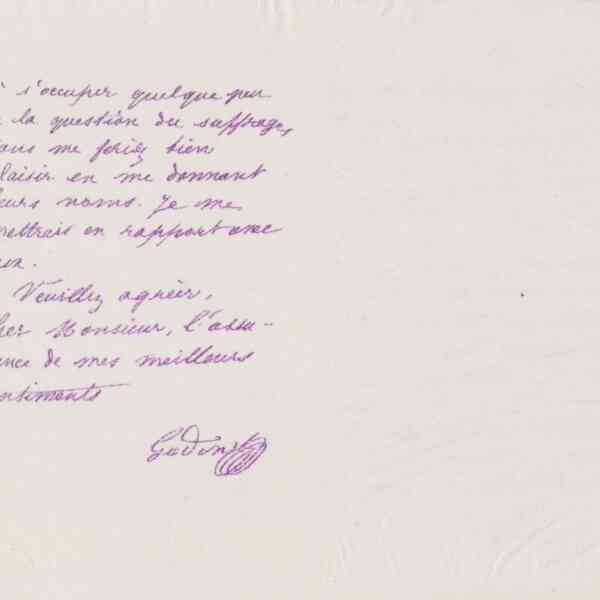 à s'occuper quelque peu
la question du suffrage,
vous me feriez bien
laisir en me donnant
leurs noms. Je me
mettrais en rapport avec
eux.
Veuillez agréer,
her Monsieur, l'assu-
ance de mes meilleurs
ntiments